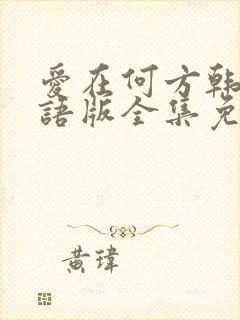 愛在何方韩
語版全集免
黄瑋